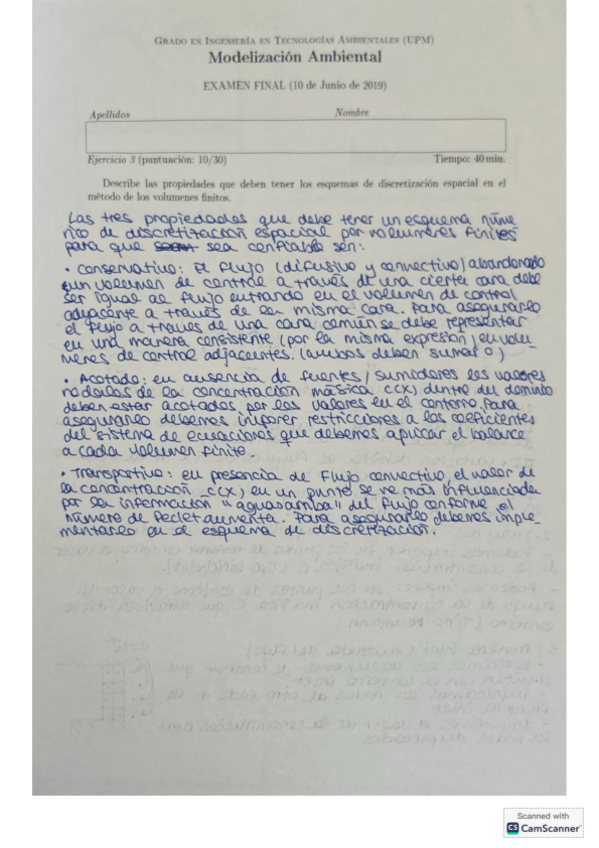 GRADO EN INGENIERÍA EN TECNOLOGÍAS AMBIENTALES (UPM)
Modelización Ambiental
EXAMEN FINAL (10 de Junio de 2019)
Apellidos Nombre
Ejercicio 3 (puntuación: 10/30) Tiempo: 40 min.
Describe las propiedades que deben tener los esquemas de discretización espacial en el
método de los volumenes finitos.
Las tres propiedades que debe tener un esquema númé
rico de discretización espacial por volumenes finitos
para que sea confiable son:
• Conservativo: El flujo (difusivo y convectivo) abandonado
un volumen de control a través de una cierta cara debe
ser igual al flujo entrando en el volumen de control
adyacente a través de la misma cara. Para asegurarlo
el flujo a través de una cara común se debe representar
en una manera consistente (por la misma expresión) en volu-
menes de control adjacentes. (ambos deben sumar 0)
• Acotado: en ausencia de fuentes/sumideros los valores
nodales de la concentración másica C(x) dentro del dominio
deben estar acotados por los valores en el contorno. Para
asegurarlo debemos imponer restricciones a los coeficientes
del sistema de ecuaciones que debemos aplicar el balance
a cada volumen finito.
• Transportivo: en presencia de flujo convectivo, el valor de
la concentración C(x) en un punto se ve más influenciada
por la información "aguas arriba" del flujo conforme el
número de Peclet aumenta. Para asegurarlo debemos imple-
mentarlo en el esquema de discretización.
Scanned with
CS CamScanner